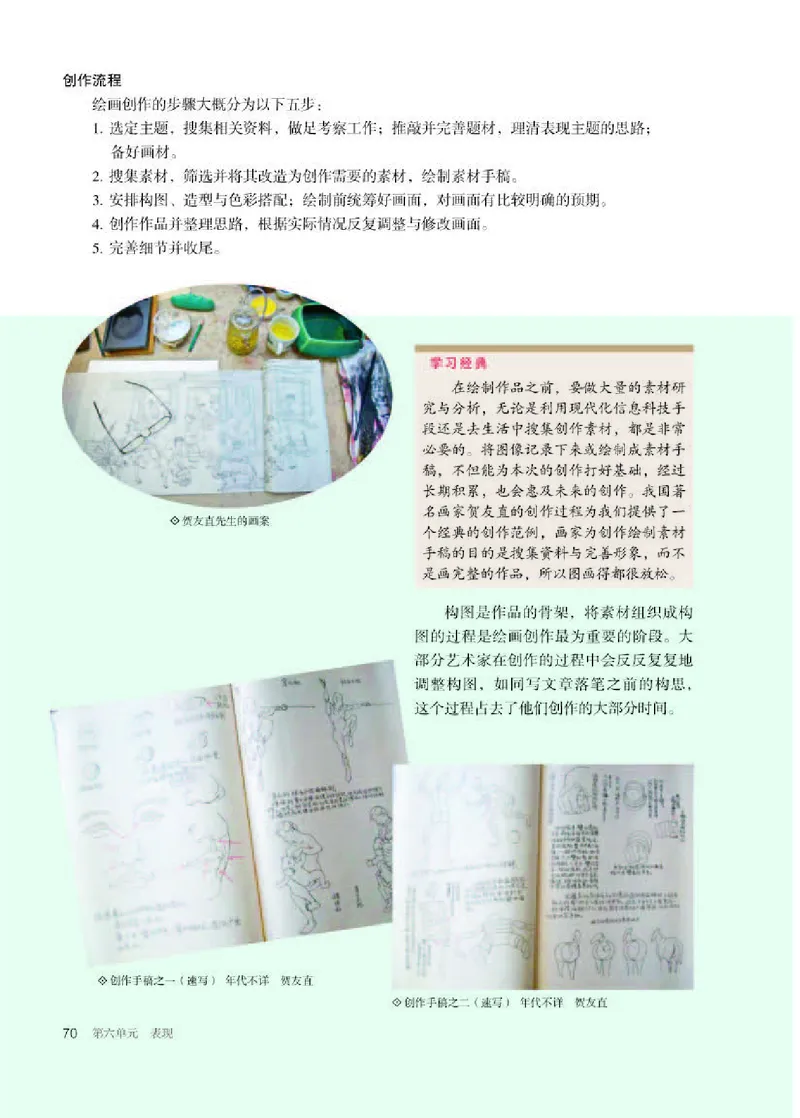 创作流程
绘画创作的步骤大概分为以下五步：
1. 选定主题，搜集相关资料，做足考察工作；推敲并完善题材，理清表现主题的思路；
备好画材。
2. 搜集素材，筛选并将其改造为创作需要的素材，绘制素材手稿。
3. 安排构图、造型与色彩搭配；绘制前统筹好画面，对画面有比较明确的预期。
4. 创作作品并整理思路，根据实际情况反复调整与修改画面。
5. 完善细节并收尾。
贺友直先生的画案
学习经典
在绘制作品之前，要做大量的素材研
究与分析，无论是利用现代化信息科技手
段还是去生活中搜集创作素材，都是非常
必要的。将图像记录下来或绘制成素材手
稿，不但能为本次的创作打好基础，经过
长期积累，也会惠及未来的创作。我国著
名画家贺友直的创作过程为我们提供了一
个经典的创作范例，画家为创作绘制素材
手稿的目的是搜集资料与完善形象，而不
是画完整的作品，所以图画得都很放松。
构图是作品的骨架，将素材组织成构
图的过程是绘画创作最为重要的阶段。大
部分艺术家在创作的过程中会反反复复地
调整构图，如同写文章落笔之前的构思，
这个过程占去了他们创作的大部分时间。
创作手稿之一（速写） 年代不详 贺友直
创作手稿之二（速写） 年代不详 贺友直
70 第六单元 表现